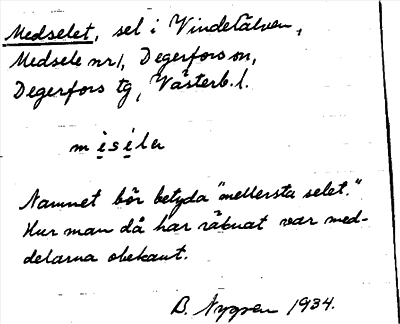 Medselet, sel i Vindelälven,
Medsele nr 1, Degerfors sn,
Degerfors tg, Västerb. l.
misile
Namnet bör betyda "mellersta selet."
Hur man då har räknat var med-
delarna obekant.
B. Nygren 1934.